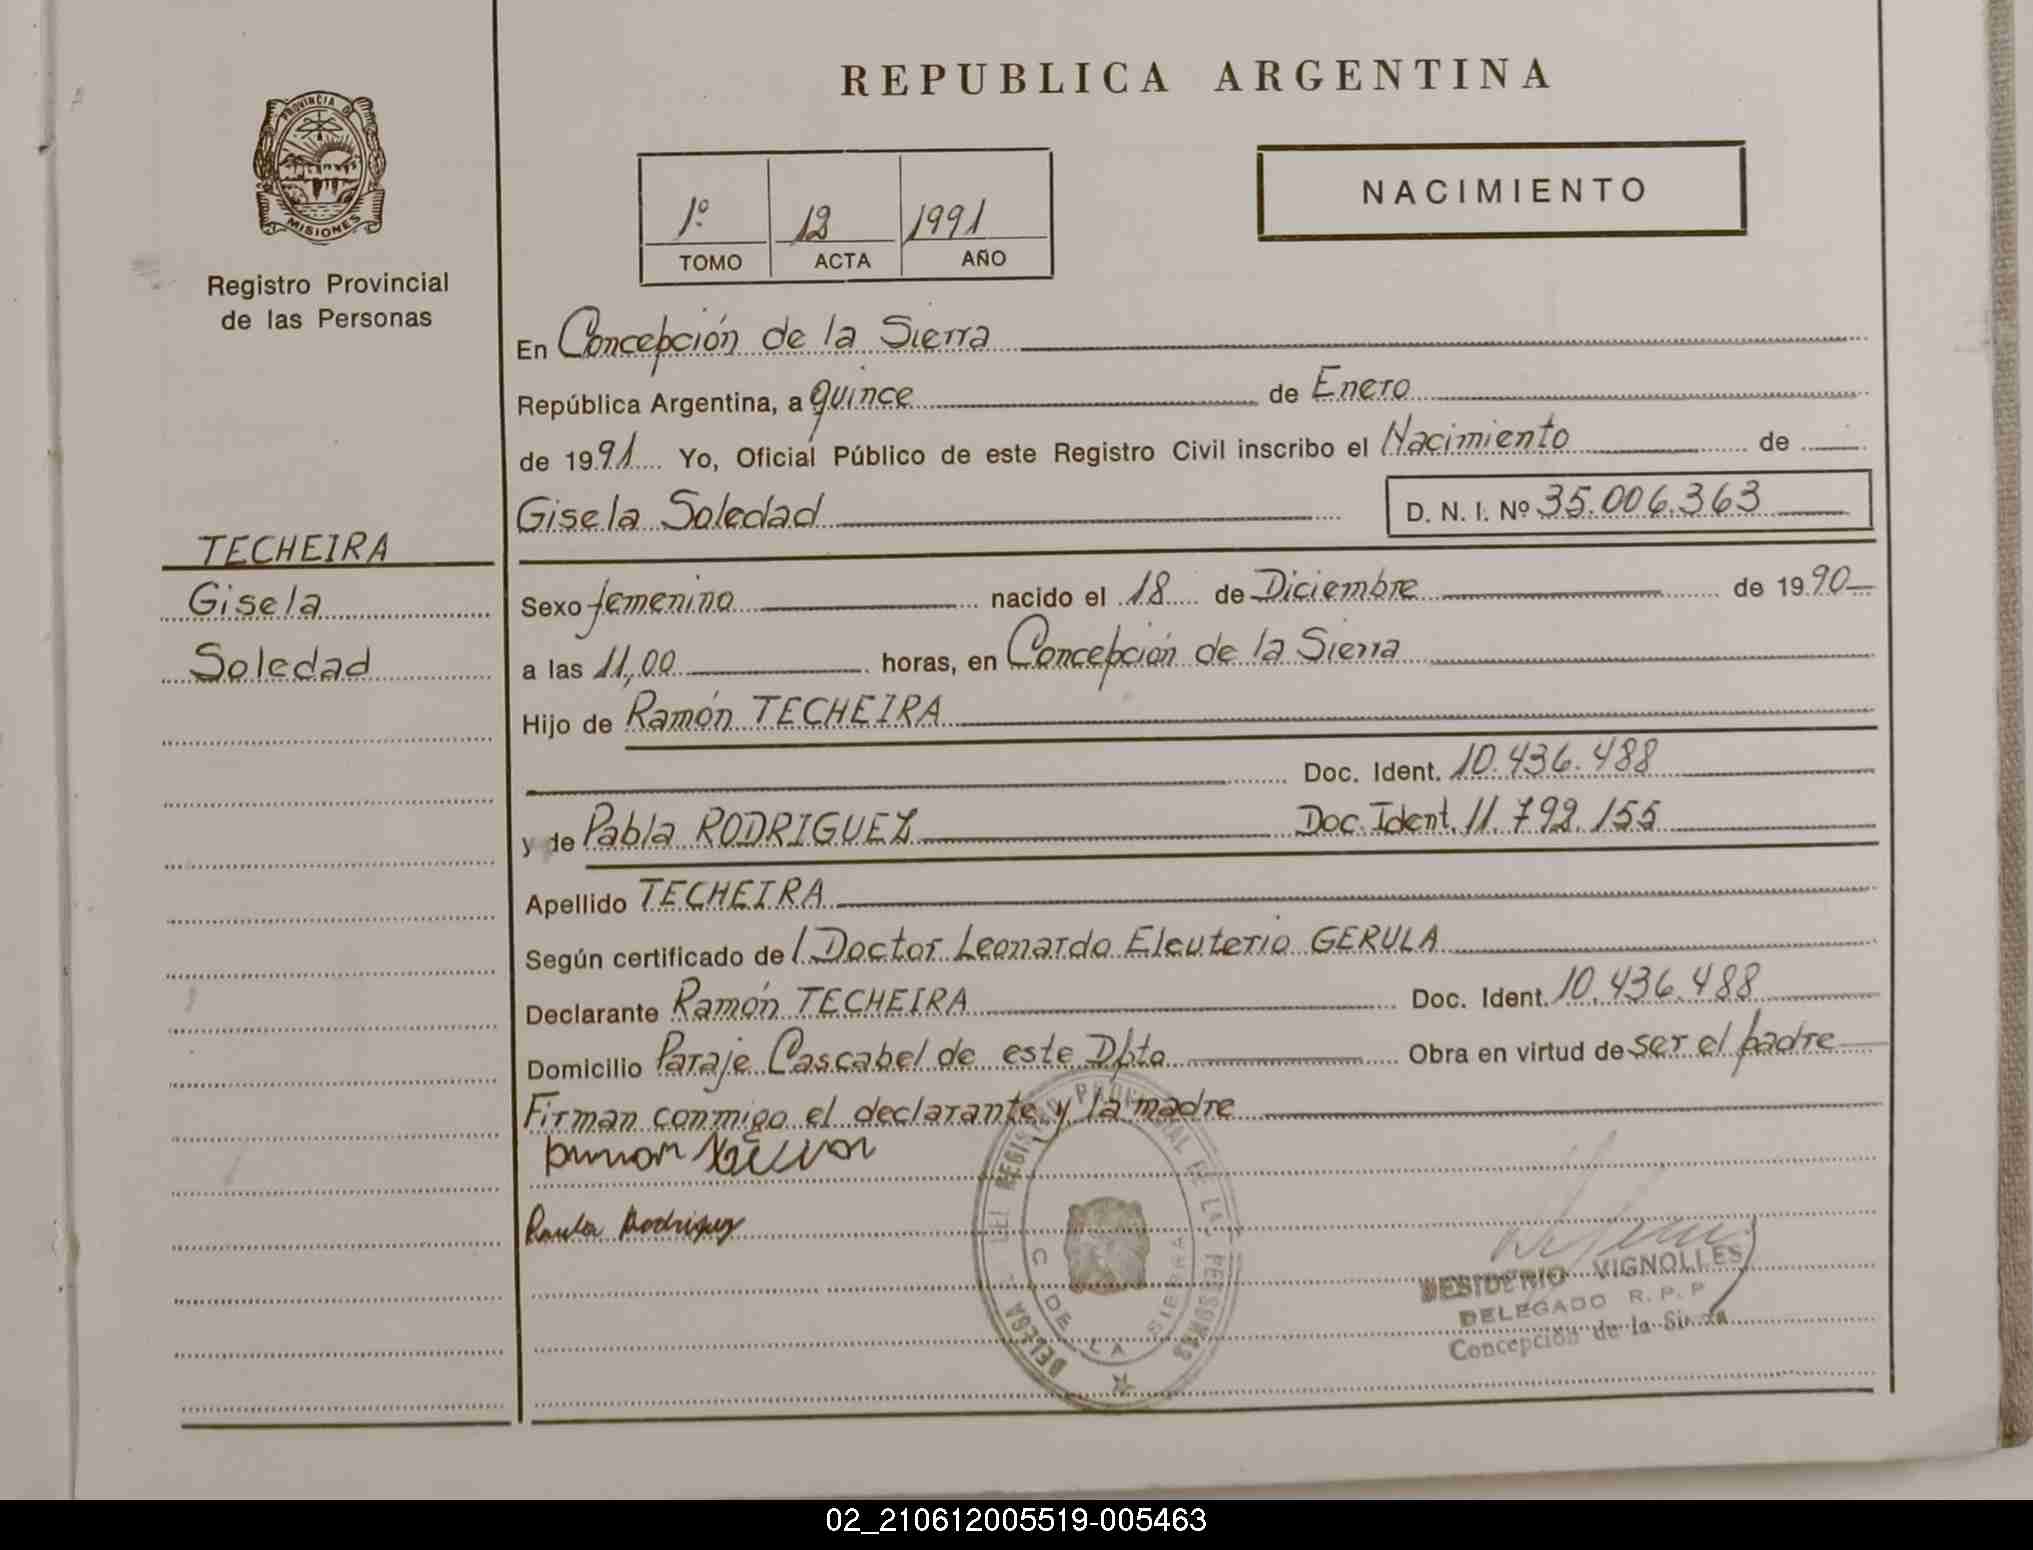 REPUBLICA ARGENTINA
PROVINCIA DE
MISIONES
Registro Provincial
de las Personas
1º 12 1991
TOMO ACTA AÑO
NACIMIENTO
En Concepción de la Sierra
República Argentina, a quince de Enero
de 1991 Yo, Oficial Público de este Registro Civil inscribo el Nacimiento de
Gisela Soledad D. N. I. Nº 35.006.363
TECHEIRA
Gisela
Soledad
Sexo femenino nacido el 18 de Diciembre de 1990
a las 11,00 horas, en Concepción de la Sierra
Hijo de Ramón TECHEIRA
Doc. Ident. 10.436.488
y de Pabla RODRIGUEZ Doc. Ident. 11.792.155
Apellido TECHEIRA
Según certificado de l Doctor Leonardo Eleuterio GERULA
Declarante Ramón TECHEIRA Doc. Ident. 10.436.488
Domicilio Paraje Cascabel de este Dpto Obra en virtud de ser el padre
Firman conmigo el declarante y la madre
Rodriguez
DELEGA DEL REGISTRO PROVINCIAL DE LAS PERSONAS
C DE LA SIERRA
DESIDERIO VIGNOLLES
DELEGADO R. P. P
Concepción de la Sierra
02_210612005519-005463